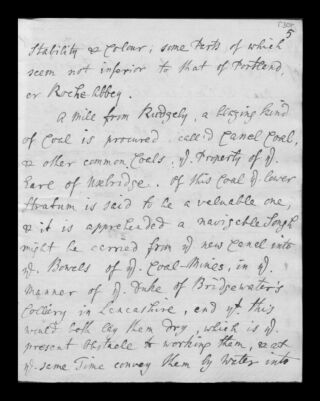 5
Stability & Colour; some Parts of which
seem not inferior to that of Portland,
or Roche Abbey.
A mile from Rudgely, a blazing kind
of Coal is procured call'd Canel Coal,
& other common Coals, yᵉ. Property of yᵉ.
Earl of Uxbridge. Of this Coal yᵉ lower
Stratum is said to be a valuable one,
& it is apprehended a navigable Sough
might be carried from yᵉ new Canel into
yᵉ. Bowels of yᵉ. Coal-Mines, in yᵉ.
Manner of yᵉ. Duke of Bridgewater's
Colliery in Lancashire, and yᵗ this
would both lay them dry, which is yᵉ.
present Obstacle to working them, & at
yᵉ. same Time convey them by Water into